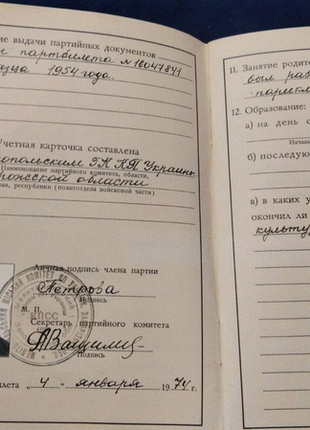 ие выдачи партийных документов
партбилета № 16047841
1954 года.
Учетная карточка составлена
опольским ГК КП Украины
Наименование партийного комитета, области,
рожской области
рая, республики (политотдела войсковой части)
Личная подпись члена партии
Петрова
Подпись
М. П.
Секретарь партийного комитета
Подпись
КПСС
лета „ 4 “ января 1974 г.
11. Занятие родите
был раб
12. Образование:
а) на день
Началь
б) последую
в) в каких у
окончил ли
культу